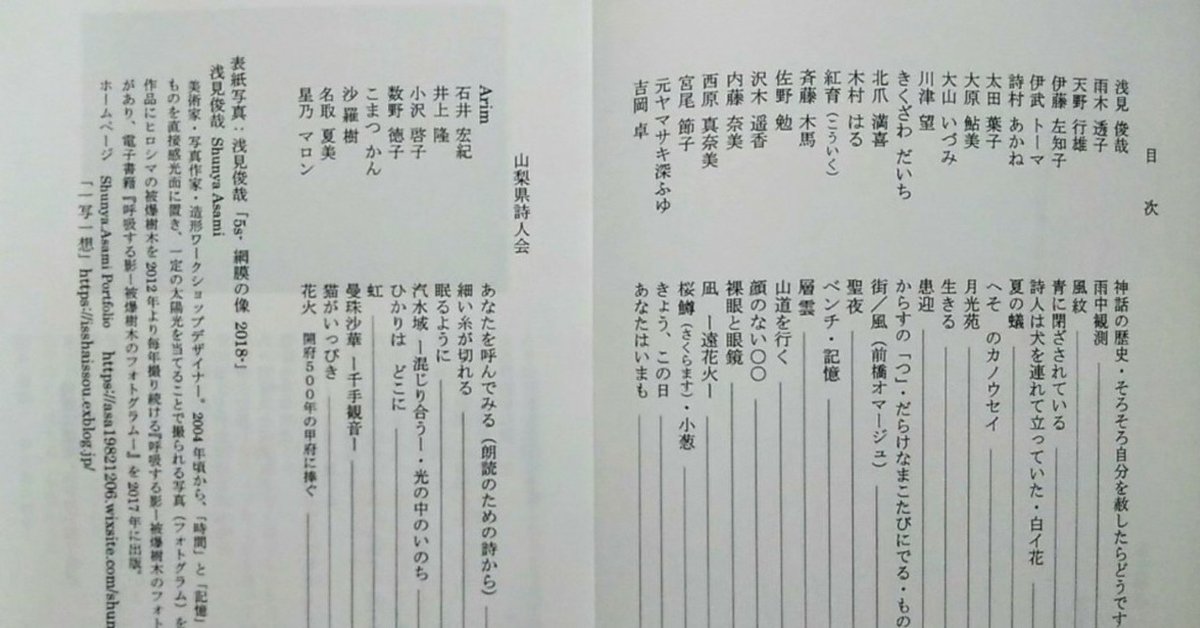 目　次
浅見 俊哉　神話の歴史・そろそろ自分を赦したらどうです
雨木 透子　雨中観測
天野 行雄　風紋
伊藤 左知子　青に閉ざされている
伊武 トーマ　詩人は犬を連れて立っていた・白イ花
詩村 あかね　夏の蟻
太田 葉子　へそ のカノウセイ
大原 鮎美　月光苑
大山 いづみ　生きる
川津 望　患迎
きくざわ だいち　からすの「つ」・だらけなまこたびにでる・もの
北爪 満喜　街／風（前橋オマージュ）
木村 はる　聖夜
紅育（こういく）　ベンチ・記憶
斉藤 木馬　層雲
佐野 勉　山道を行く
沢木 遥香　顔のない〇〇
内藤 奈美　裸眼と眼鏡
西原 真奈美　凪 ー遠花火ー
宮尾 節子　桜鱒（さくらます）・小葱
元ヤマサキ深ふゆ　きょう、この日
吉岡 卓　あなたはいまも
山梨県詩人会
Arim　あなたを呼んでみる（朗読のための詩から）
石井 宏紀　細い糸が切れる
井上 隆　眠るように
小沢 啓子　汽水域 ー混じり合うー・光の中のいのち
数野 徳子　ひかりは どこに
こまつ かん　虹
沙羅樹　曼珠沙華 ー千手観音ー
名取 夏美　猫がいっぴき
星乃 マロン　花火　開府500年の甲府に捧ぐ
表紙写真：浅見俊哉「5s- 網膜の像 2018-」
浅見俊哉 Shunya Asami
美術家・写真作家・造形ワークショップデザイナー。2004年頃から、「時間」と「記憶」
ものを直接感光面に置き、一定の太陽光を当てることで撮られる写真（フォトグラム）を
作品にヒロシマの被爆樹木を2012年より毎年撮り続ける『呼吸する影ー被爆樹木のフォト
があり、電子書籍『呼吸する影ー被爆樹木のフォトグラムー』を2017年に出版。
ホームページ　Shunya.Asami Portfolio　https://asa19821206.wixsite.com/shun
「一写一想」https://isshaissou.exblog.jp/